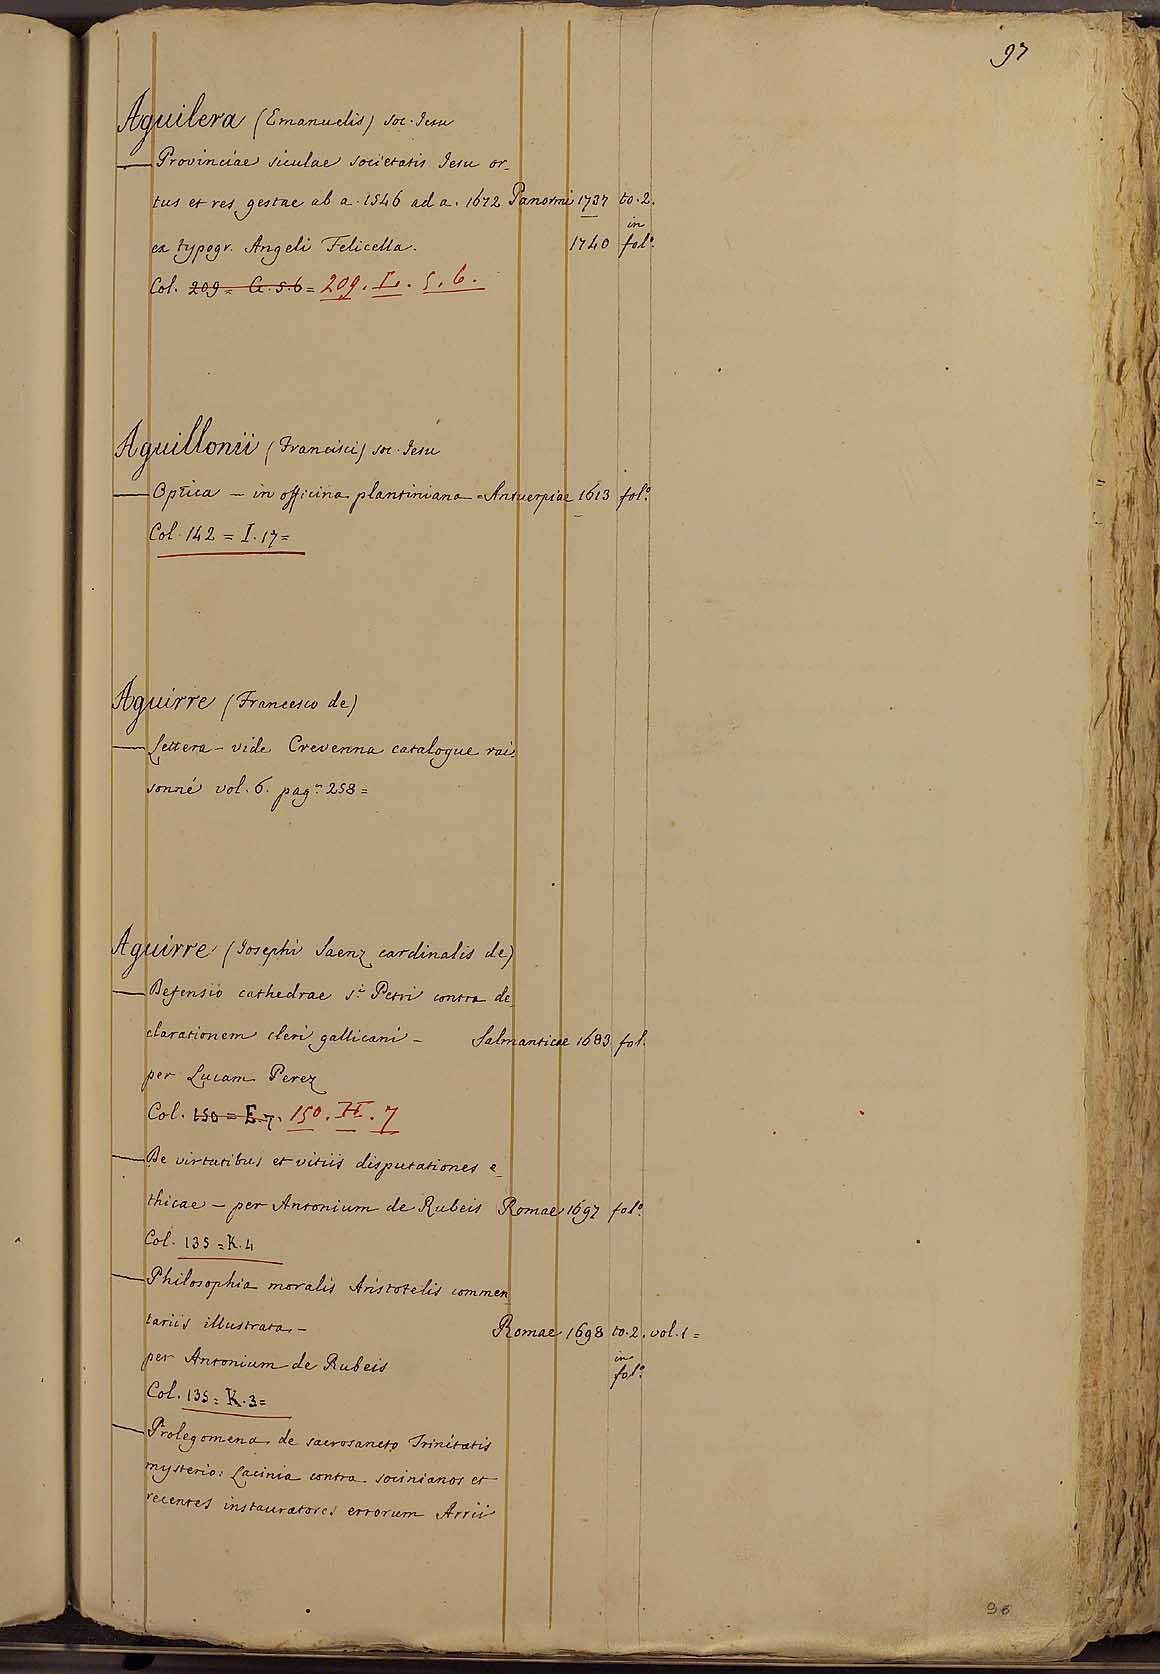 97
Aguilera (Emanuelis) soc. Jesu
— Provinciae siculae societatis Jesu or-
tus et res gestae ab a. 1546 ad a. 1672 Panormi 1737 to. 2.
in
ex typogr. Angeli Felicella. 1740 fol.º
Col. 209 = G. 5. 6 = 209. L. 5. 6.
Aguillonii (Francisci) soc. Jesu
— Optica — in officina plantiniana = Antuerpiae 1613 fol.º
Col. 142 = I. 17 =
Aguirre (Francesco de)
— Lettera — vide Crevenna catalogue rai-
sonné vol. 6. pag.ª 258 =
Aguirre (Josephi Saenz cardinalis de)
— Defensio cathedrae s.ti Petri contra de-
clarationem cleri gallicani — Salmanticae 1683 fol.
per Lucam Perez
Col. 150 = E. 7. 150. H. 7
— De virtutibus et vitiis disputationes e-
thicae — per Antonium de Rubeis Romae 1697 fol.º
Col. 135 = K. 4
— Philosophia moralis Aristotelis commen-
tariis illustrata — Romae 1698 to. 2. vol. 1 =
in
per Antonium de Rubeis fol.º
Col. 135 = K. 3 =
— Prolegomena de sacrosancto Trinitatis
mysterio: Lacinia contra socinianos et
recentes instauratores errorum Arrii
96